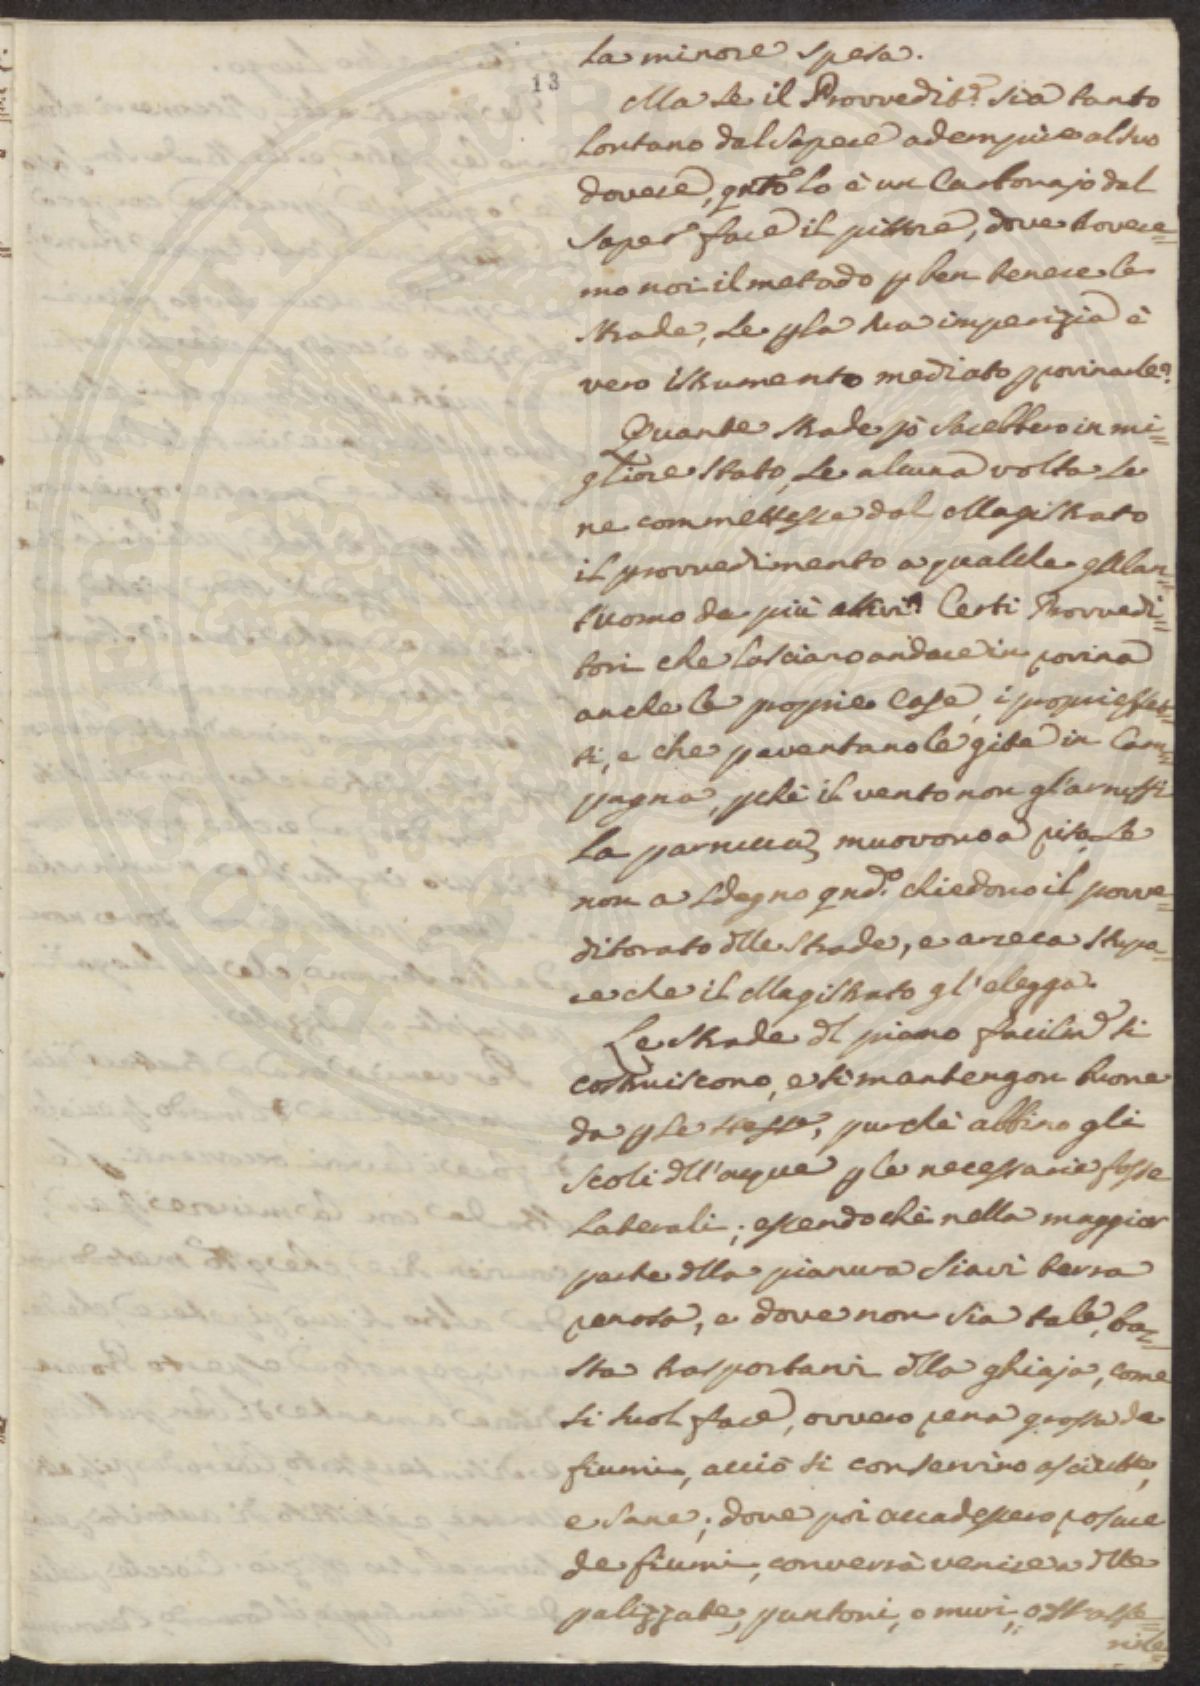 la minore spesa.
13
Ma se il Provvedit.e sia tanto
lontano dal sapere adempire al suo
dovere, qnto lo è un Carbonajo dal
saper fare il pittore, dove trovere=
mo noi il metodo p ben tenere le
strade, se p la sua imperizia è
vero istrumento mediato p rovinarle?
Quante strade pò sarebbero in mi=
gliore stato, se alcuna volta se
ne commettesse dal Magistrato
il provvedimento a qualche gallan=
tuomo de più attivi! Certi Provvedi=
tori che lasciano andare in rovina
anche le proprie Case, i proprj effet=
ti, e che paventano le gite in Cam=
pagna, pchè il vento non gl'arruffi
la parrucca, muovono a riso, se
non a sdegno qndo chiedono il provve=
ditorato dlle strade, e arreca stupo=
re che il Magistrato gl'elegga.
Le strade dl piano facilmte si
costruiscono, e si mantengon buone
da p se stesse, purchè abbino gli
scoli dll'acque p le necessarie fosse
laterali; essendochè nella maggior
parte dlla pianura siavi terra
renosa, e dove non sia tale, ba=
sta trasportarvi dlla ghiaja, come
si suol fare, ovvero rena grossa de
fiumi, acciò si conservino asciutte,
e sane; dove poi accadessero rosure
de fiumi, converrà venire a dlle
palizzate, puntoni, o muri, o
nile=